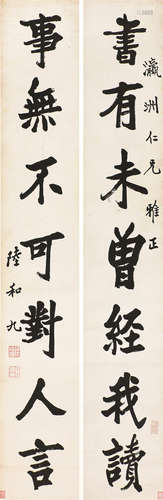 書有未曾經我讀
瀛洲仁兄雅正
事無不可對人言
陸和九